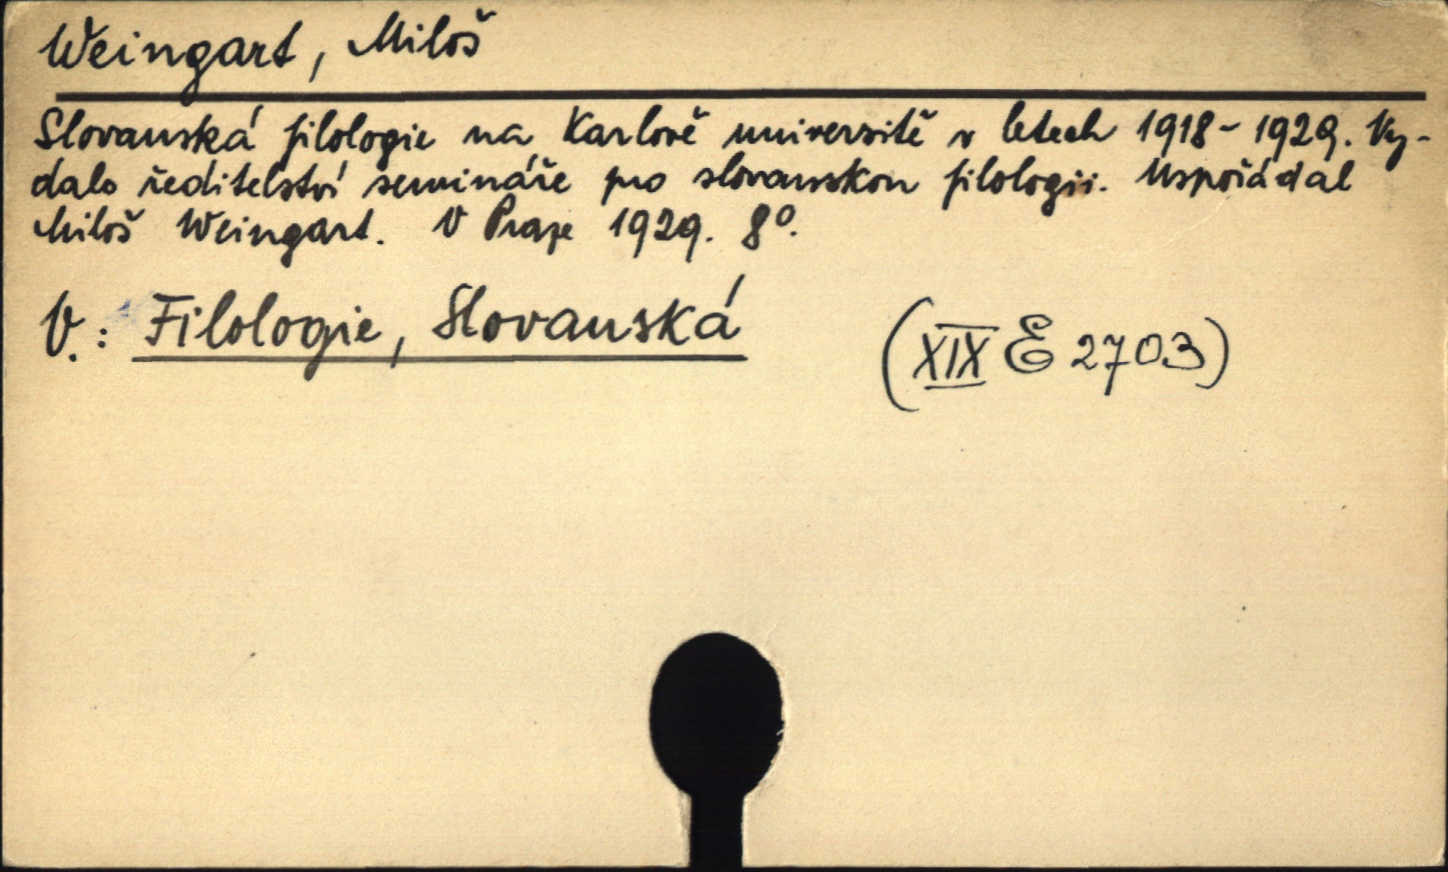 Weingart, Miloš
Slovanská filologie na Karlově universitě v letech 1918-1929. Vy-
dalo ředitelství semináře pro slovanskou filologii. Uspořádal
Miloš Weingart. V Praze 1929. 8°.
V.: Filologie, Slovanská
(XIX E 2703)